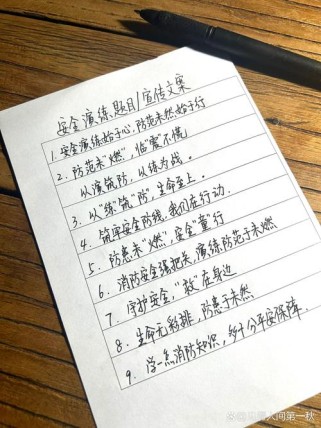 安全演练题目/宣传文案
1. 安全演练始于心，防范未然始于行
2. 防范未“燃”，临“震”不慌
从演筑防，以练为战。
3. 从“练”筑“防”，生命至上。
4. 筑牢安全防线，我们在行动.
5. 防患未“燃”，安全“童”行
6. 消防安全强把关，演练防范于未燃
7. 守护安全，“救”在身边
8. 生命无彩排，防患于未然
9. 学一点消防知识，多十分平安保障.
人间第一秋